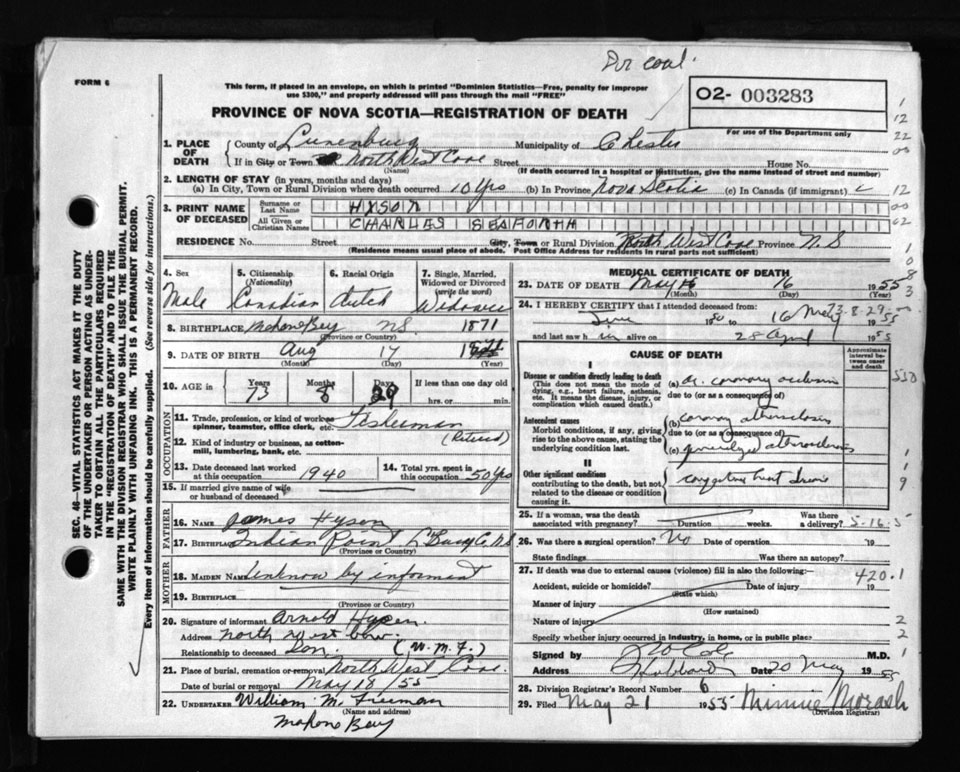 FORM 6
This form, if placed in an envelope, on which is printed "Dominion Statistics—Free, penalty for improper
use $300," and properly addressed will pass through the mail "FREE"
O2- 003283
PROVINCE OF NOVA SCOTIA—REGISTRATION OF DEATH
For use of the Department only
1. PLACE OF DEATH
County of Lunenburg Municipality of Chester
If in City or Town North West Cove Street House No.
(Name) (If death occurred in a hospital or institution, give the name instead of street and number)
2. LENGTH OF STAY (in years, months and days)
(a) In City, Town or Rural Division where death occurred 10 Yrs (b) In Province Nova Scotia (c) In Canada (if immigrant)
3. PRINT NAME OF DECEASED
Surname or Last Name HYSON
All Given or Christian Names CHARLES SEAFORTH
RESIDENCE No. Street City, Town or Rural Division North West Cove Province N S
(Residence means usual place of abode. Post Office Address for residents in rural parts not sufficient)
4. Sex Male
5. Citizenship (Nationality) Canadian
6. Racial Origin Dutch
7. Single, Married, Widowed or Divorced (write the word) Widower
8. BIRTHPLACE Mahone Bay N.S. 1871
(Province or Country)
9. DATE OF BIRTH Aug 17
(Month) (Day) (Year)
10. AGE in Years Months Days If less than one day old
73 8 29 hrs. or min.
OCCUPATION
11. Trade, profession, or kind of work as spinner, teamster, office clerk, etc. Fisherman
(Retired)
12. Kind of industry or business, as cotton-mill, lumbering, bank, etc.
13. Date deceased last worked at this occupation 1940
14. Total yrs. spent in this occupation 50 Yrs
15. If married give name of wife or husband of deceased
FATHER
16. NAME James Hyson
17. BIRTHPLACE Indian Point L'Burg Co N S
(Province or Country)
MOTHER
18. MAIDEN NAME unknow by informant
19. BIRTHPLACE
(Province or Country)
20. Signature of informant Arnold Hyson
Address North West Cove
Relationship to deceased Son. (W. M. F.)
21. Place of burial, cremation or removal North West Cove.
Date of burial or removal May 18 55
22. UNDERTAKER William M. Freeman
(Name and address)
Mahone Bay
MEDICAL CERTIFICATE OF DEATH
23. DATE OF DEATH May 16 1955
(Month) (Day) (Year)
24. I HEREBY CERTIFY that I attended deceased from: 73-8-29
June 1950 to 16 May 1955
and last saw h im alive on 28 April 1955
CAUSE OF DEATH
Approximate interval between onset and death
I
Disease or condition directly leading to death
(This does not mean the mode of dying, e.g., heart failure, asthenia, etc. It means the disease, injury, or complication which caused death.)
(a) ac. coronary occlusion
due to (or as a consequence of)
Antecedent causes
Morbid conditions, if any, giving rise to the above cause, stating the underlying condition last.
(b) coronary atherosclerosis
due to (or as a consequence of)
(c) generalized atherosclerosis
II
Other significant conditions
contributing to the death, but not related to the disease or condition causing it.
congestive heart disease
25. If a woman, was the death associated with pregnancy? Duration weeks. Was there a delivery? 5-16-5
26. Was there a surgical operation? No Date of operation 19
State findings Was there an autopsy?
27. If death was due to external causes (violence) fill in also the following:— 420.1
Accident, suicide or homicide? Date of injury 19
(State which)
Manner of injury
(How sustained)
Nature of injury
Specify whether injury occurred in industry, in home, or in public place:
Signed by Cole M.D.
Address Hubbards Date 20 May 1955
28. Division Registrar's Record Number 6
29. Filed May 21 1955 Minnie Morash
(Division Registrar)
SEC. 46—VITAL STATISTICS ACT MAKES IT THE DUTY
OF THE UNDERTAKER OR PERSON ACTING AS UNDER-
TAKER TO OBTAIN ALL THE PARTICULARS REQUIRED
IN THE "REGISTRATION OF DEATH" AND TO FILE THE
SAME WITH THE DIVISION REGISTRAR WHO SHALL ISSUE THE BURIAL PERMIT.
WRITE PLAINLY WITH UNFADING INK. THIS IS A PERMANENT RECORD.
Every item of information should be carefully supplied. (See reverse side for instructions.)